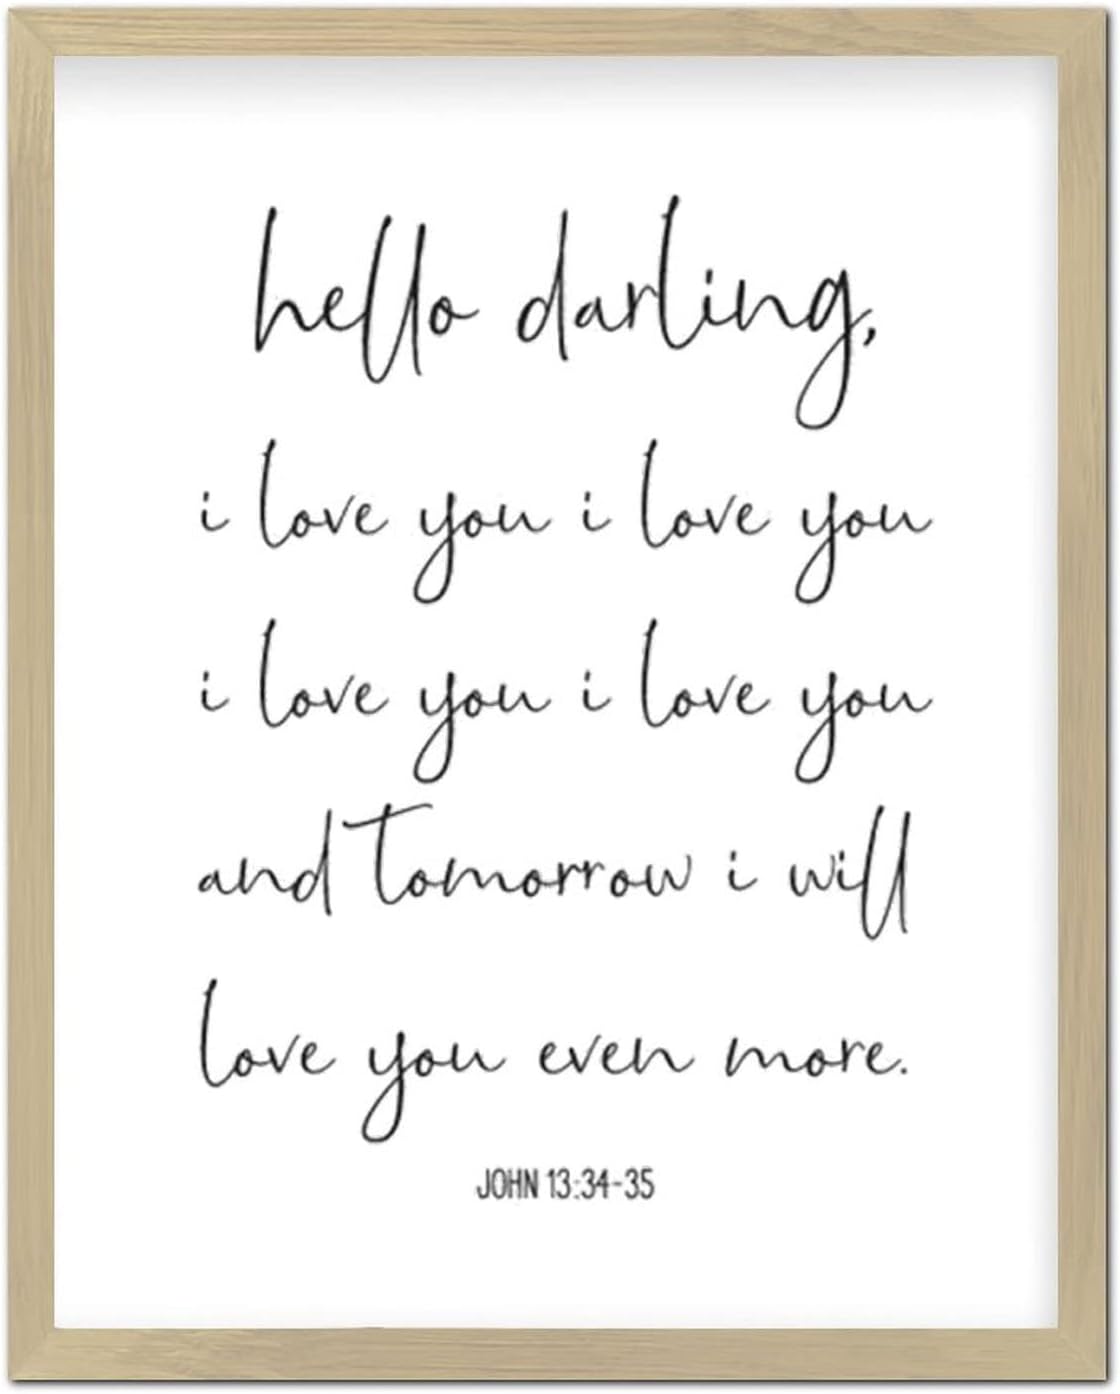 hello darling,
i love you i love you
i love you i love you
and tomorrow i will
love you even more.
JOHN 13:34-35